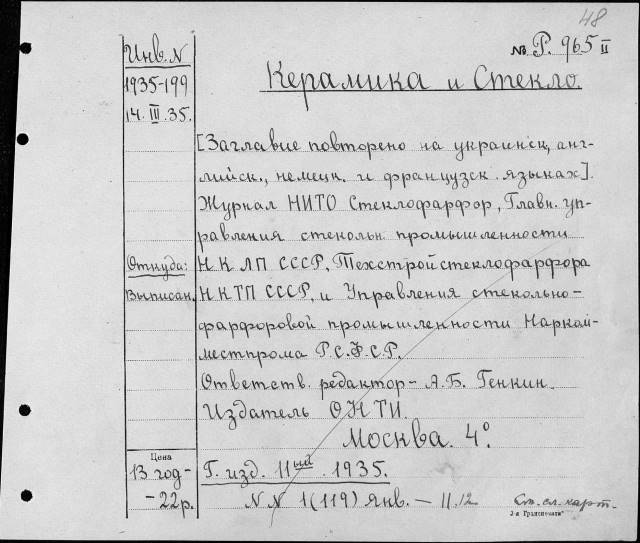 48
Инв. N
1935-199
14. III. 35.
№ Р. 965 II
Керамика и Стекло.
[Заглавие повторено на украинск, анг-
лийск., немецк. и французск. языках].
Журнал НИТО Стеклофарфор, Главн. уп-
равления стекольн. промышленности
Откуда:
Выписан.
НКЛП СССР, Техстройстеклофарфора
НКТП СССР, и Управления стекольно-
фарфоровой промышленности Нарком-
местпрома Р.С.Ф.С.Р.
Ответств. редактор - А.Б. Генкин.
Издатель ОНТИ.
Москва. 4°.
Цена
13 год-
-22р.
Г. изд. 11ый. 1935.
N N 1(119) Янв. - 11.12
См. сл. карт.